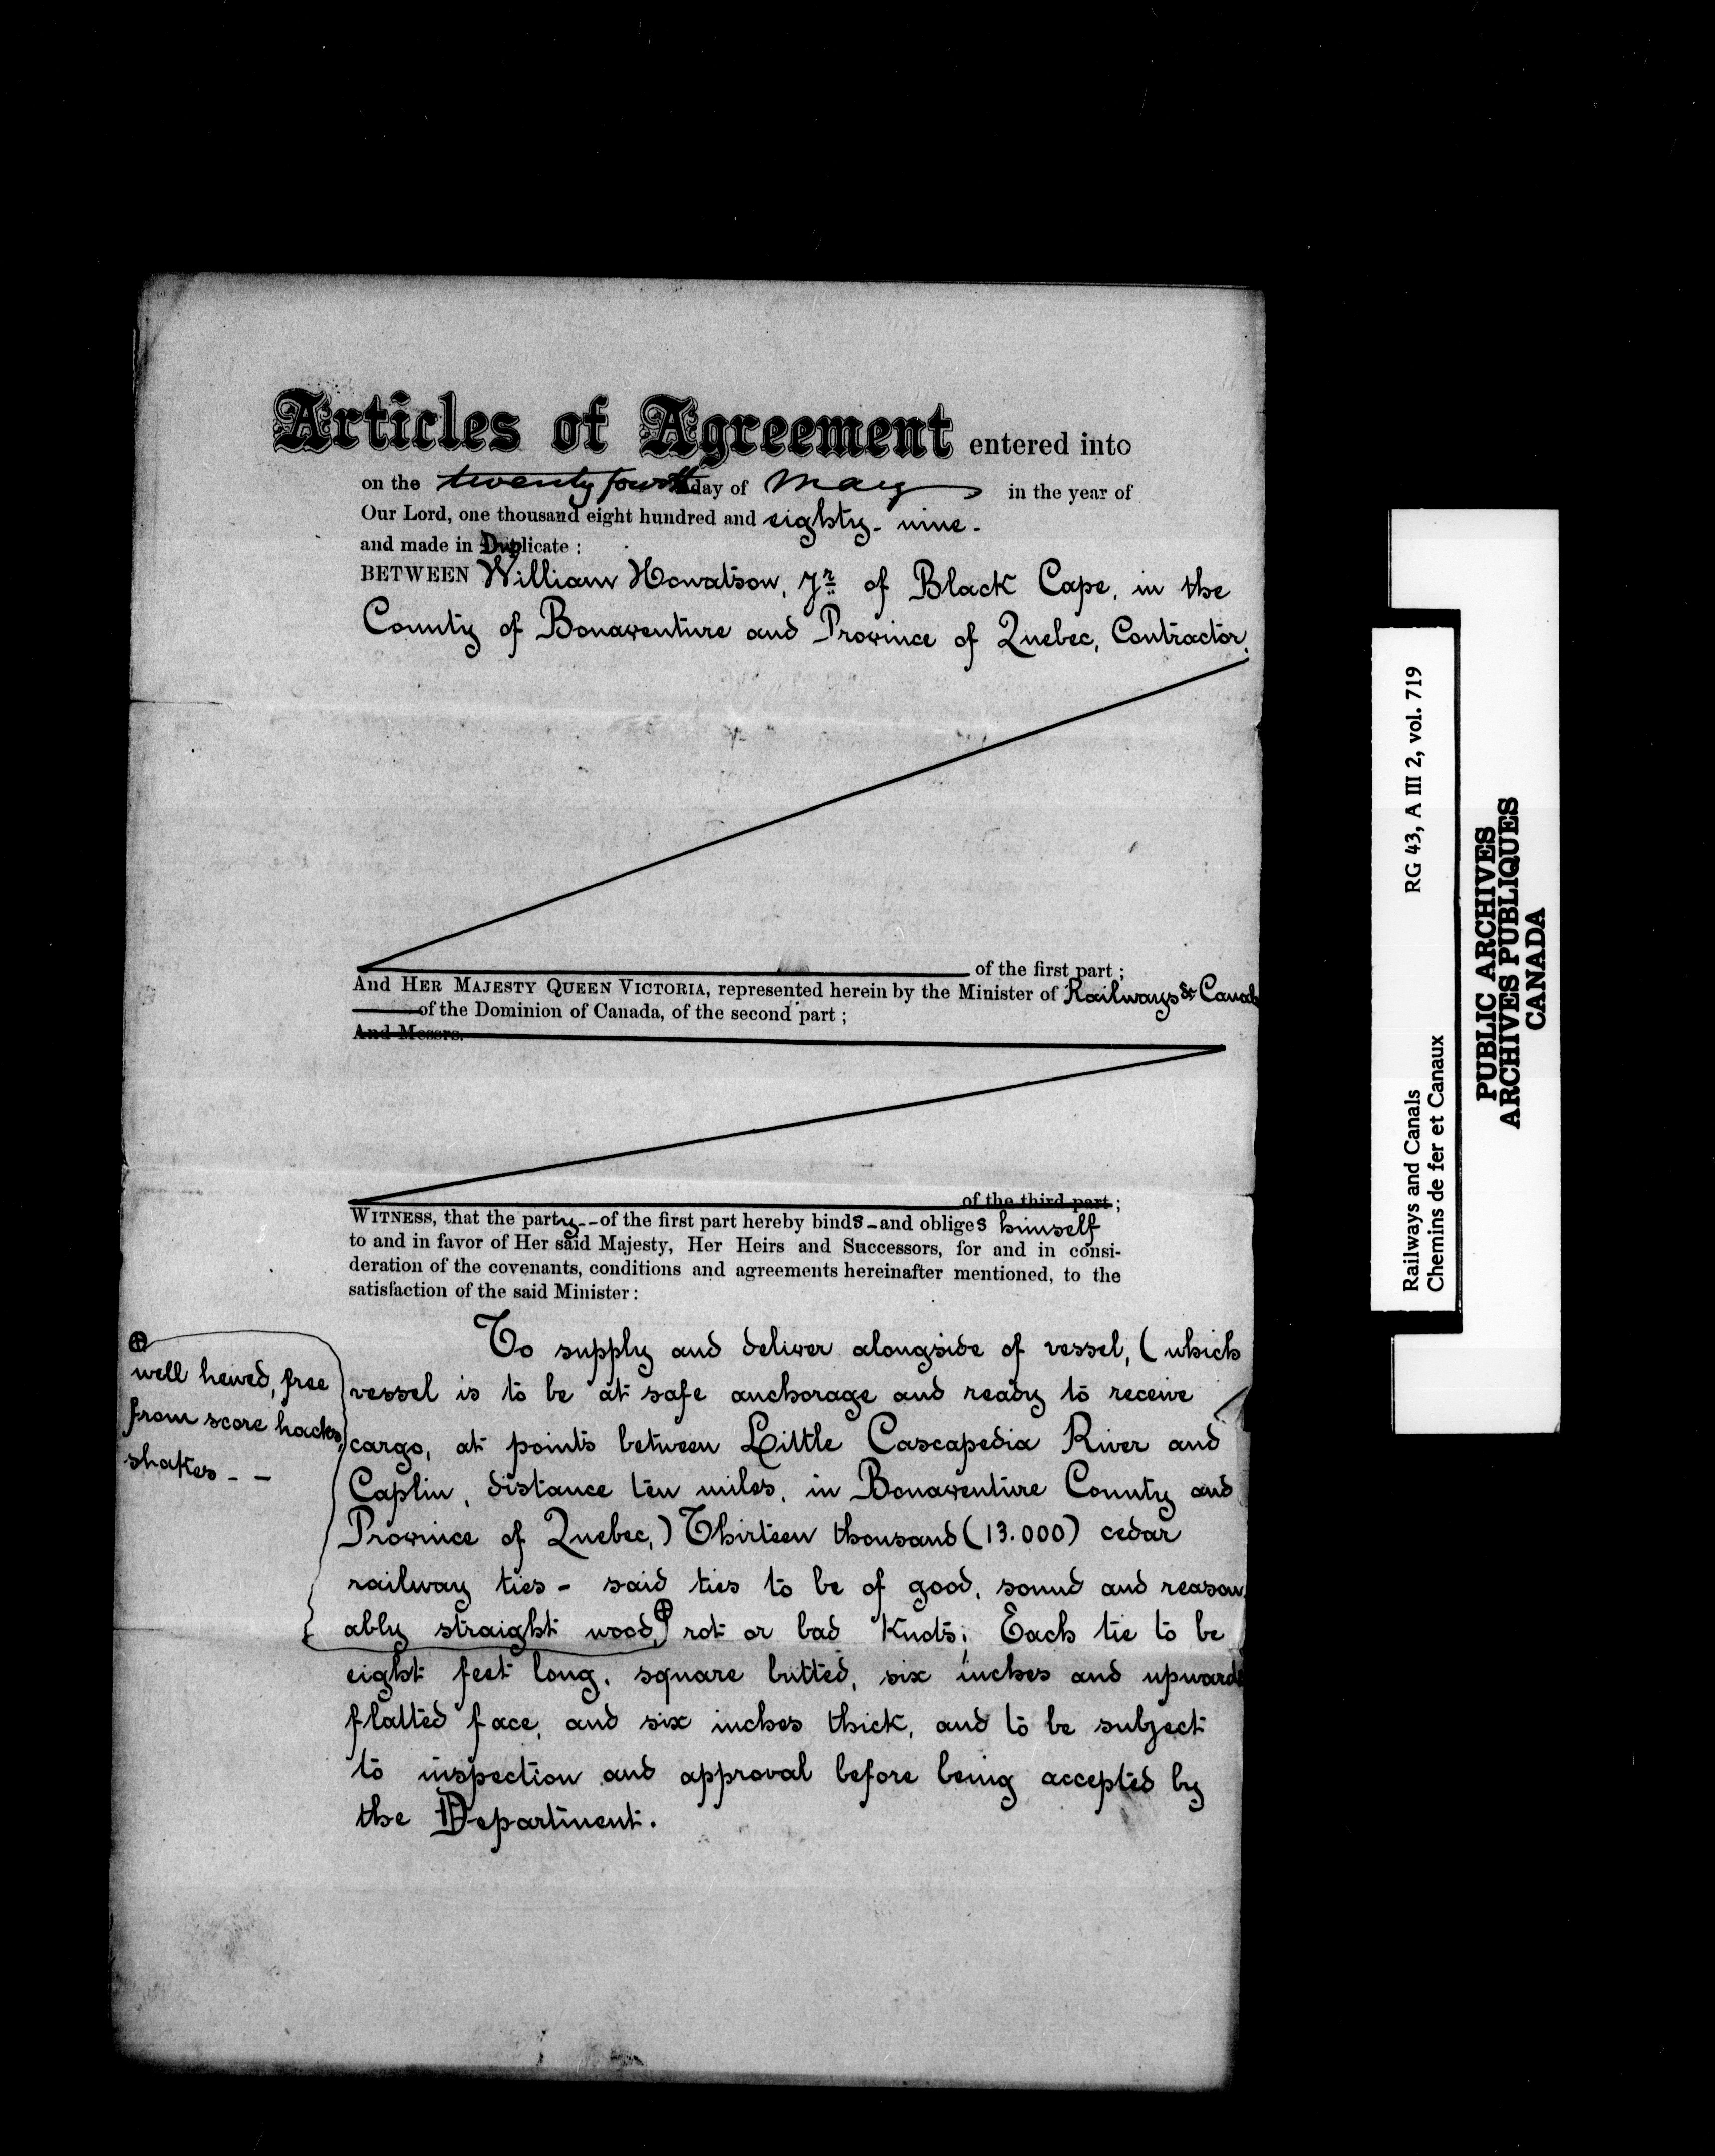 Articles of Agreement entered into
on the twenty fourth day of May in the year of
Our Lord, one thousand eight hundred and eighty-nine-
and made in Duplicate :
BETWEEN William Howatson, Jr of Black Cape, in the
County of Bonaventure and Province of Quebec, Contractor,
of the first part ;
And HER MAJESTY QUEEN VICTORIA, represented herein by the Minister of Railways & Canals
of the Dominion of Canada, of the second part ;
And Messrs.
of the third part ;
WITNESS, that the party--of the first part hereby binds-and obliges himself
to and in favor of Her said Majesty, Her Heirs and Successors, for and in consi-
deration of the covenants, conditions and agreements hereinafter mentioned, to the
satisfaction of the said Minister :
To supply and deliver alongside of vessel, (which
vessel is to be at safe anchorage and ready to receive
cargo, at points between Little Cascapedia River and
Caplin, distance ten miles, in Bonaventure County and
Province of Quebec,) Thirteen thousand (13.000) cedar
railway ties - said ties to be of good, sound and reason
ably straight wood,⊕ rot or bad Knots; Each tie to be
eight feet long, square butted, six inches and upwards
flatted face, and six inches thick, and to be subject
to inspection and approval before being accepted by
the Department.
⊕
well hewed, free
from score hacks,
shakes - -
RG 43, A III 2, vol. 719
Railways and Canals
Chemins de fer et Canaux
PUBLIC ARCHIVES
ARCHIVES PUBLIQUES
CANADA